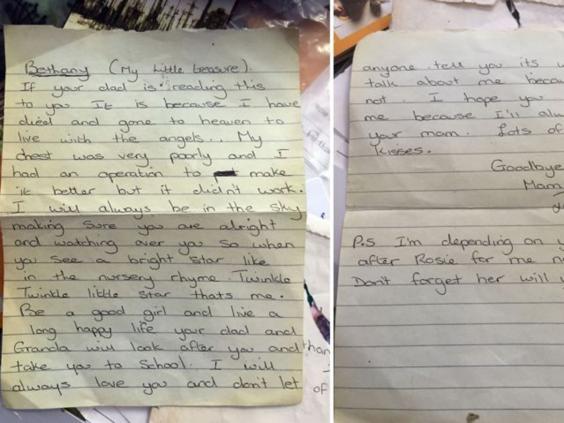 Bethany (My Little treasure).
If your dad is reading this
to you It is because I have
died and gone to heaven to
live with the angels... My
chest was very poorly and I
had an operation to make
it better but it didn't work.
I will always be in the sky
making sure you are alright
and watching over you so when
you see a bright star like
in the nursery rhyme Twinkle
Twinkle little star thats me.
Be a good girl and live a
long happy life your dad and
Granda will look after you and
take you to School. I will
always love you and don't let
anyone tell you its
talk about me
not. I hope you
me because I'll
your mam. Lots of
Kisses.
Goodbye
Mam
P.S I'm depending on
after Rosie for me
Don't forget her will